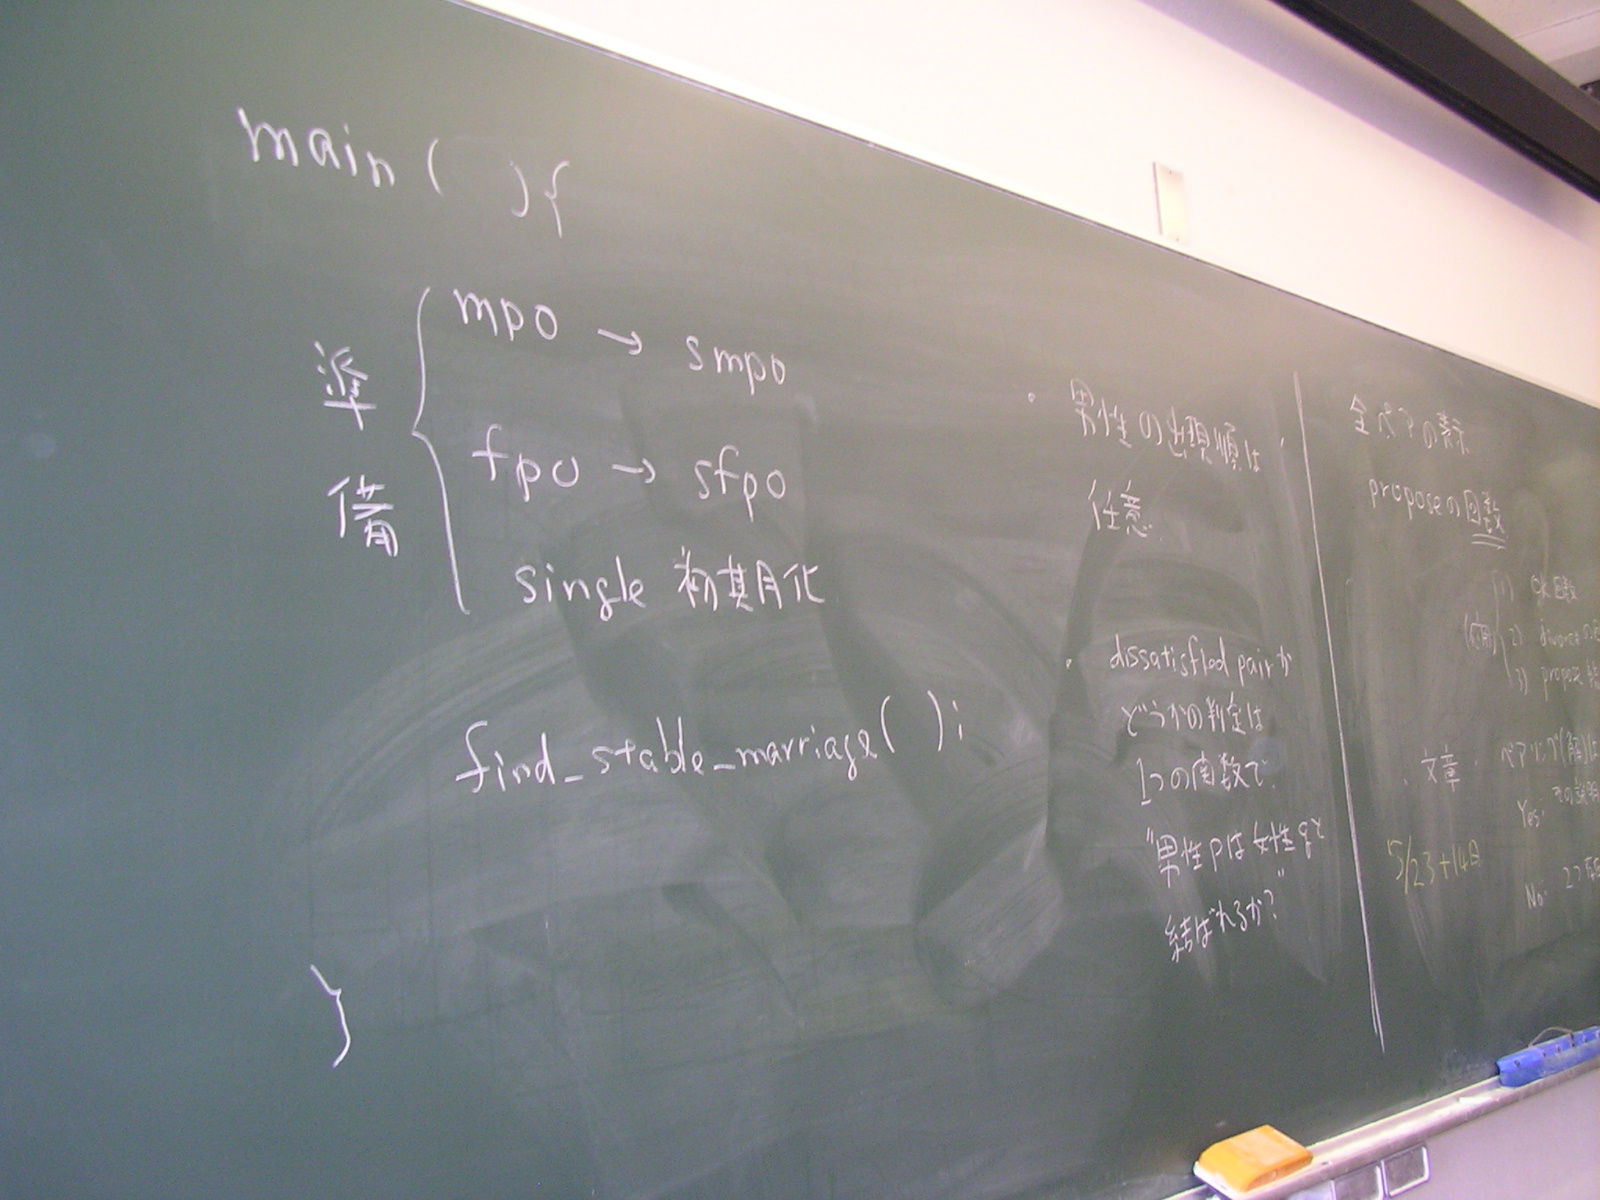 main ( ){
準備
mpo → smpo
fpo → sfpo
single 初期化
find_stable_marriage( );
}
・男性の出現順は
任意
・dissatisfied pairか
どうかの判定は
1つの関数で
"男性pは女性qと
結ばれるか?"
全ペアの表示
proposeの回数
(1) OK回数
2) divorceの
3) propose
・文章・ペアリング(解)は
Yes.
5/23+14日
No. 2つ